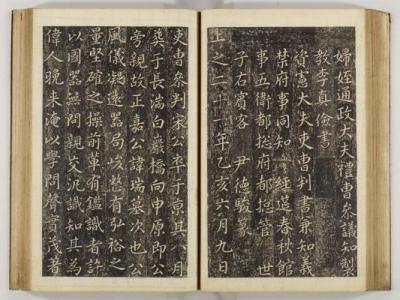 婦姪通政大夫禮曹叅議知製
教李真儉書
資憲大夫吏曹判書兼知義
禁府事同知 經筵春秋館
事五衛都摠府都摠管 世
子右賓客 尹德駿篆
上之二十一年乙亥六月九日
吏曹叅判宋公卒于京其八月
葬于長湍白嶽橋向申原即公
旁親故正嘉公諱瑞墓次也公
風儀凝遠器局峻整有弘裕之
量堅確之操前輩有鑑識者許
以國器無問親交汎識知其為
偉人晚來淹以學問聲實茂著